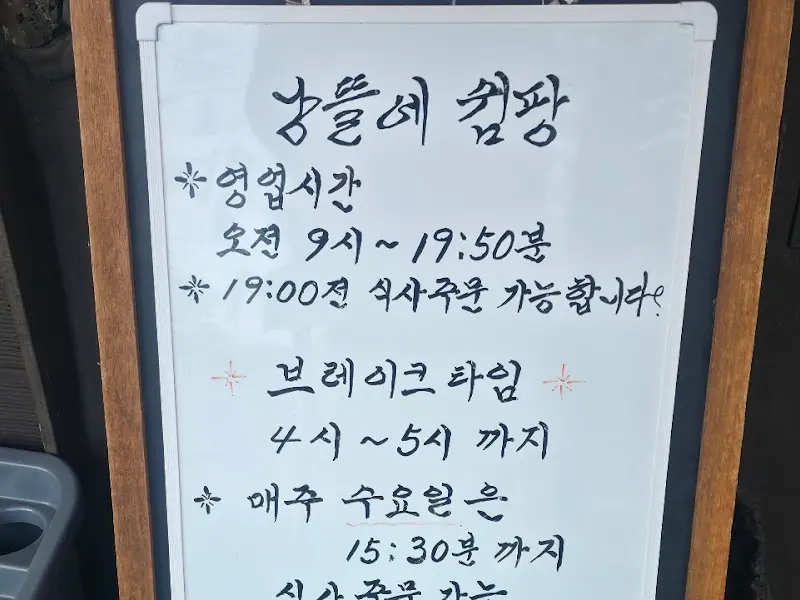 낭뜰에 쉼팡
* 영업시간
오전 9시 ~ 19:50분
* 19:00전 식사주문 가능합니다.
브레이크타임
4시 ~ 5시 까지
* 매주 수요일은
15:30분 까지
식사 주문 가능